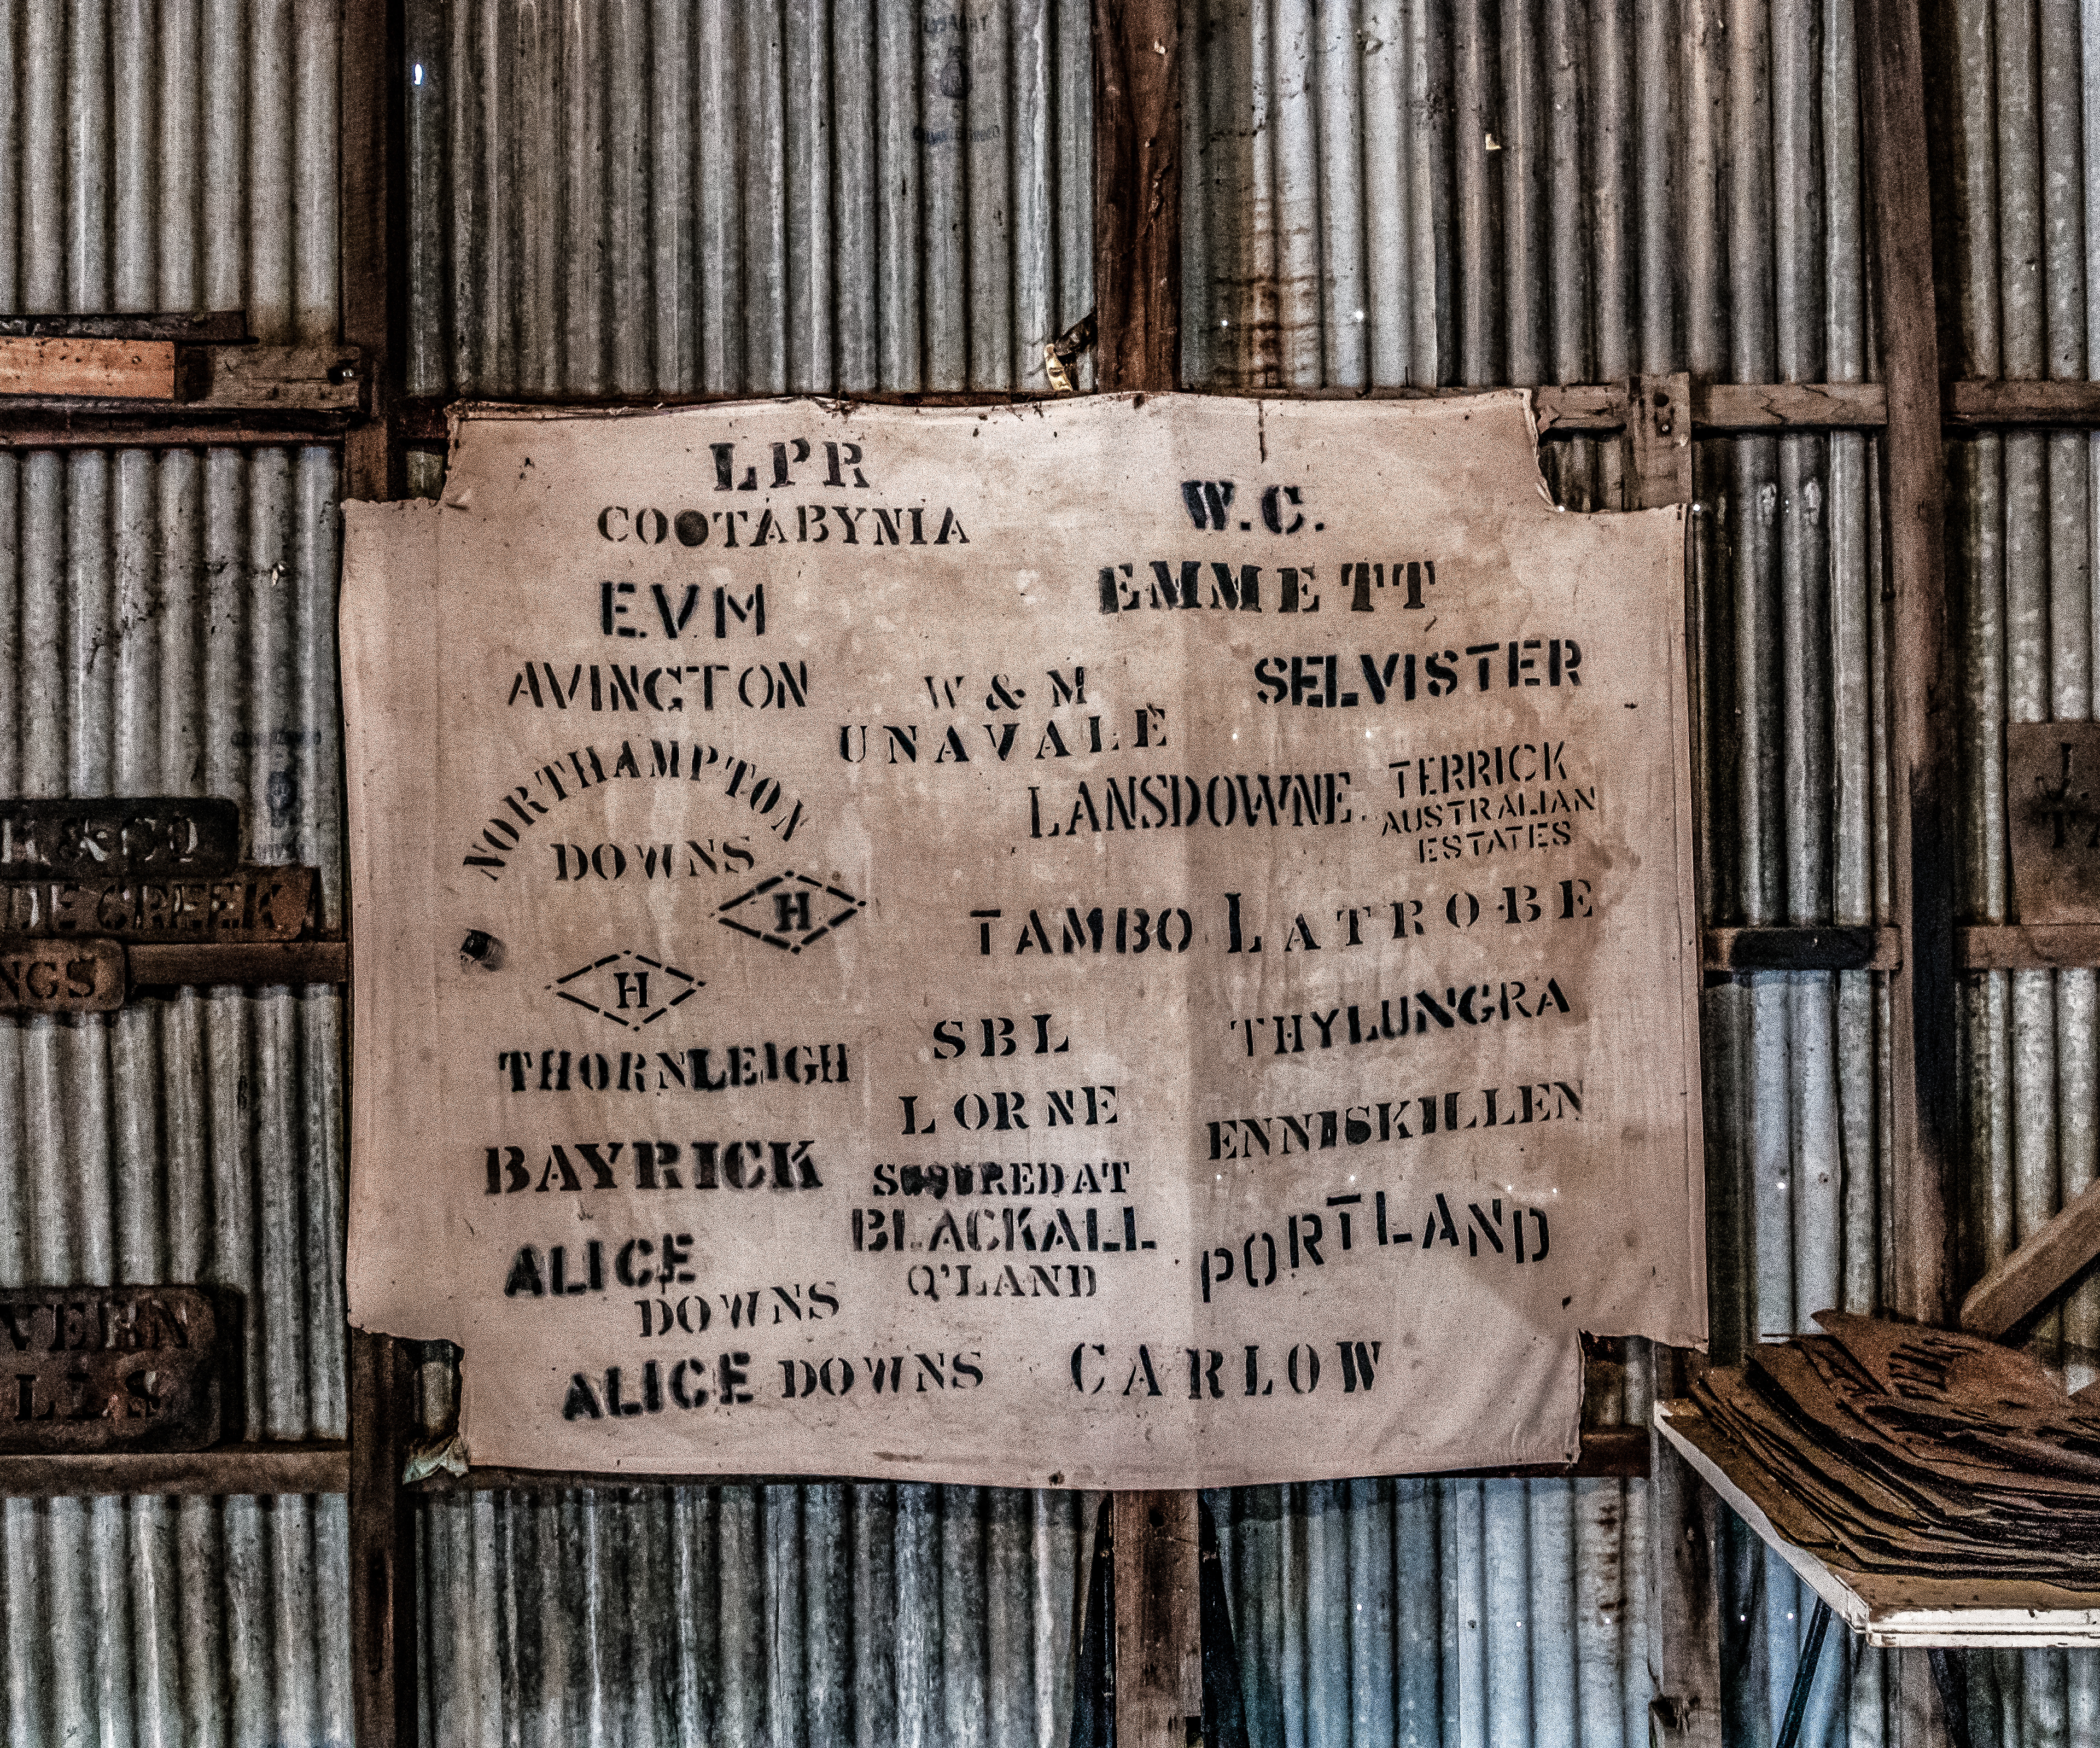 LPR
COOTABYNIA
W.C.
EMMETT
E.V.M
AVINGTON
W & M
UNAVALE
SELVISTER
NORTHAMPTON
DOWNS
H
LANSDOWNE.
TERRICK
AUSTRALIAN
ESTATES
TAMBO
LATROBE
H
THORNLEIGH
SBL
LORNE
THYLUNGRA
ENNISKILLEN
BAYRICK
SCOURED AT
BLACKALL
Q'LAND
PORTLAND
ALICE
DOWNS
ALICE DOWNS
CARLOW
& CO
CREEK
NGS